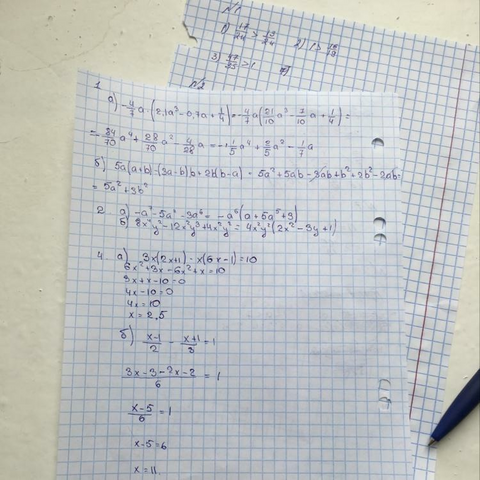 N1
1) 17/24 > 13/24 2) 1 > 18/19
3) 47/35 > 1
N2
1
а) -4/7 a · (2,1a³ - 0,7a + 1/4) = -4/7 a (21/10 a³ - 7/10 a + 1/4) =
= -84/70 a⁴ + 28/70 a² - 4/28 a = -1 1/5 a⁴ + 2/5 a² - 1/7 a
б) 5a(a+b) - (3a-b)b + 2b(b-a) = 5a² + 5ab - 3ab + b² + 2b² - 2ab =
= 5a² + 3b²
2 а) -a⁷ - 5a⁶ - 3a⁶ = -a⁶(a + 5a⁵ + 3)
б) 8x⁴y² - 12x²y³ + 4x²y² = 4x²y²(2x² - 3y + 1)
4 а) 3x(2x+1) - x(6x-1) = 10
6x² + 3x - 6x² + x = 10
3x + x - 10 = 0
4x - 10 = 0
4x = 10
x = 2,5
б) x-1/2 - x+1/3 = 1
3x-3-2x-2/6 = 1
x-5/6 = 1
x-5=6
x=11